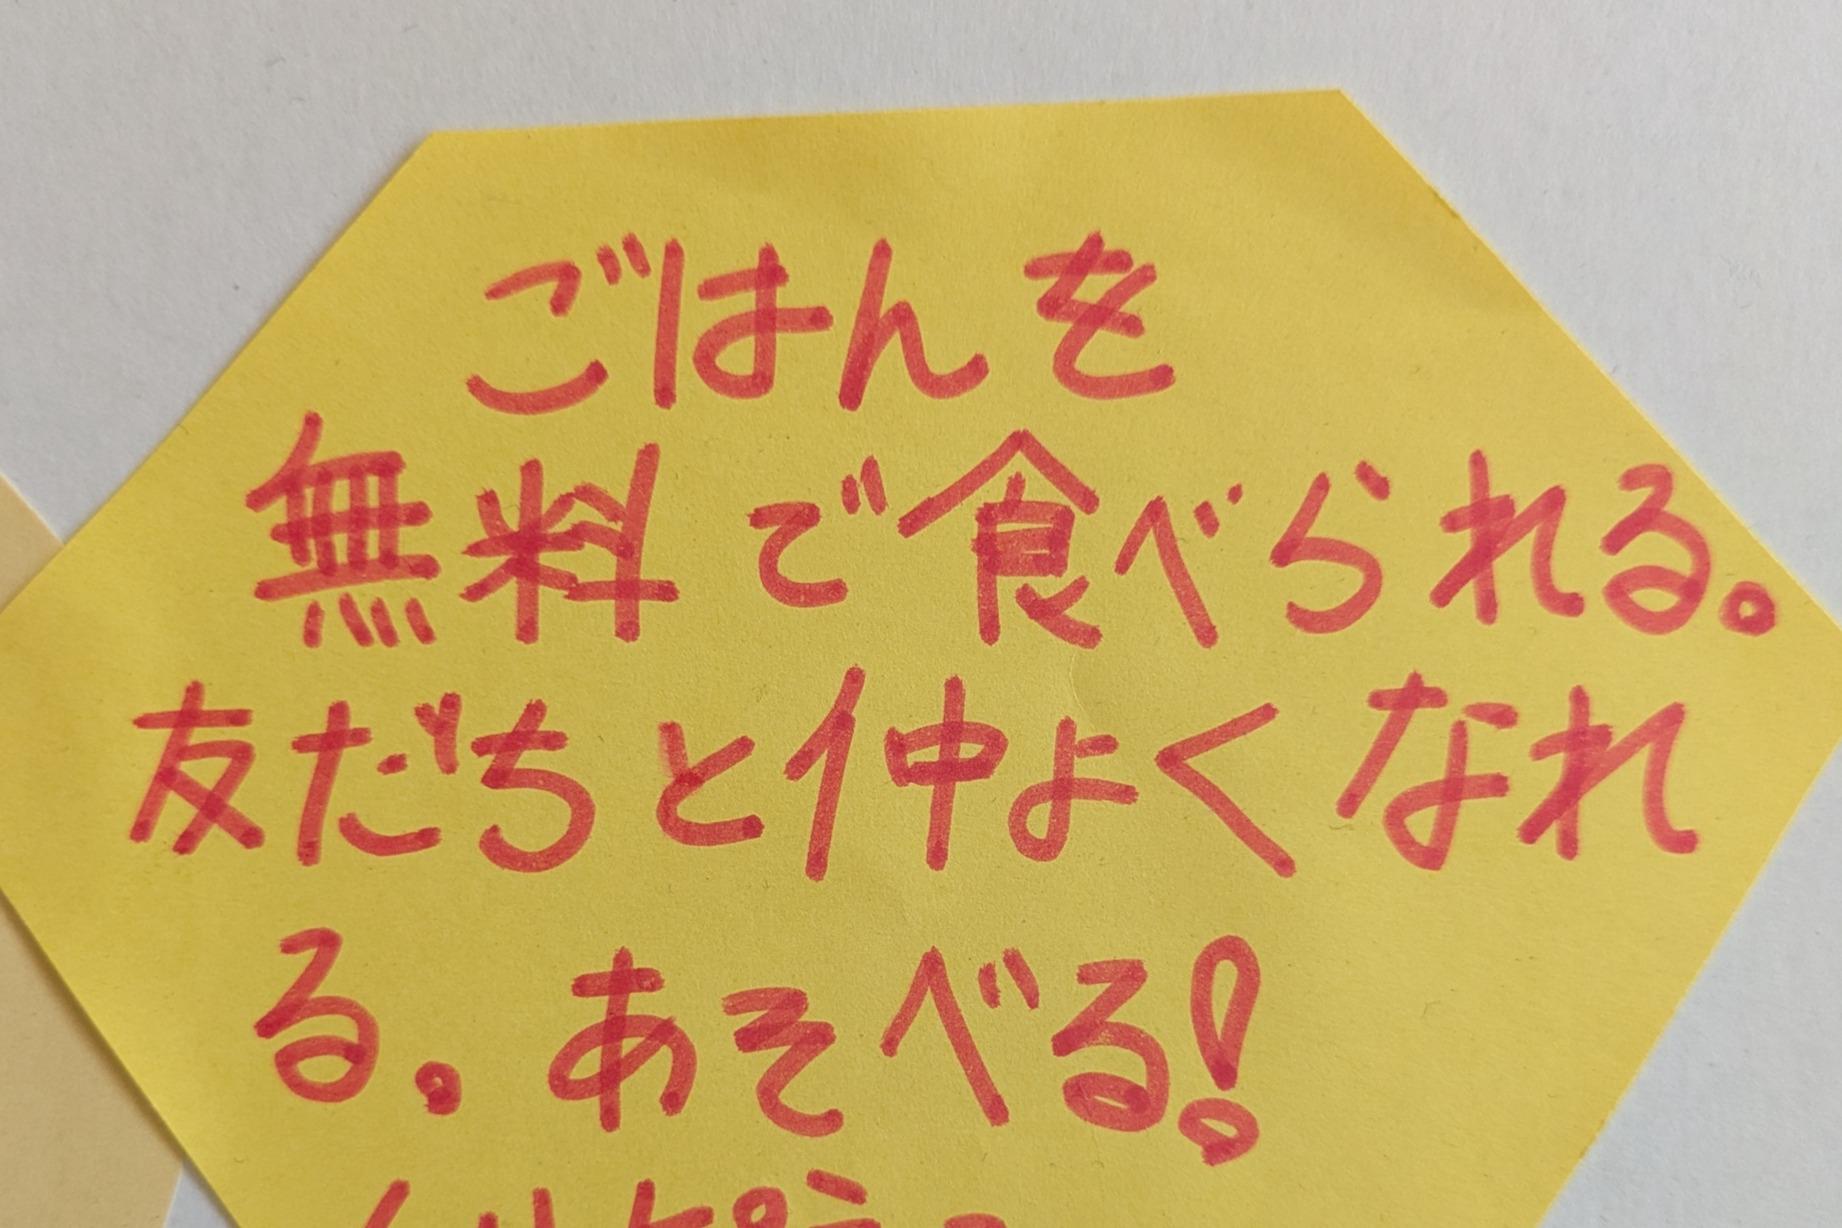 ごはんを
無料で食べられる。
友だちと仲よくなれ
る。あそべる!